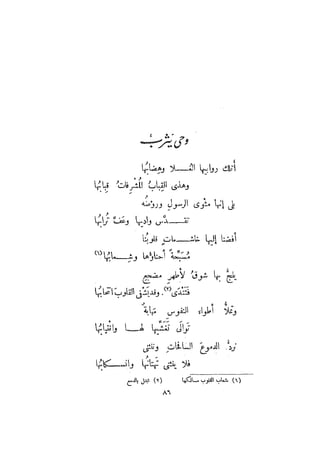 وحى يثرب
أتلك روابيها العــلا وهضابها
وهذى القباب المشرفات قبابها
بلى إنها مثوى الرسول وروضه
تقــدس واديها وعف ترابها
أفضنا إليها خاشــعات قلوبنا
مسبحة أحناؤها وشــعابها (١)
يلج بها شوق لأطهر مضجع
فتندى (٢). وقد يشفى القلوب
وتملأ أطواء النفوس مهابة
توالى تغشيها لهــا وانتيابها
نرد الدموع السافحات وننثنى
فلا ينثنى تهتانها وانسـكابها
(١) شعاب القلوب مسالكها
(٢) تبتل بالدمع
٨٦